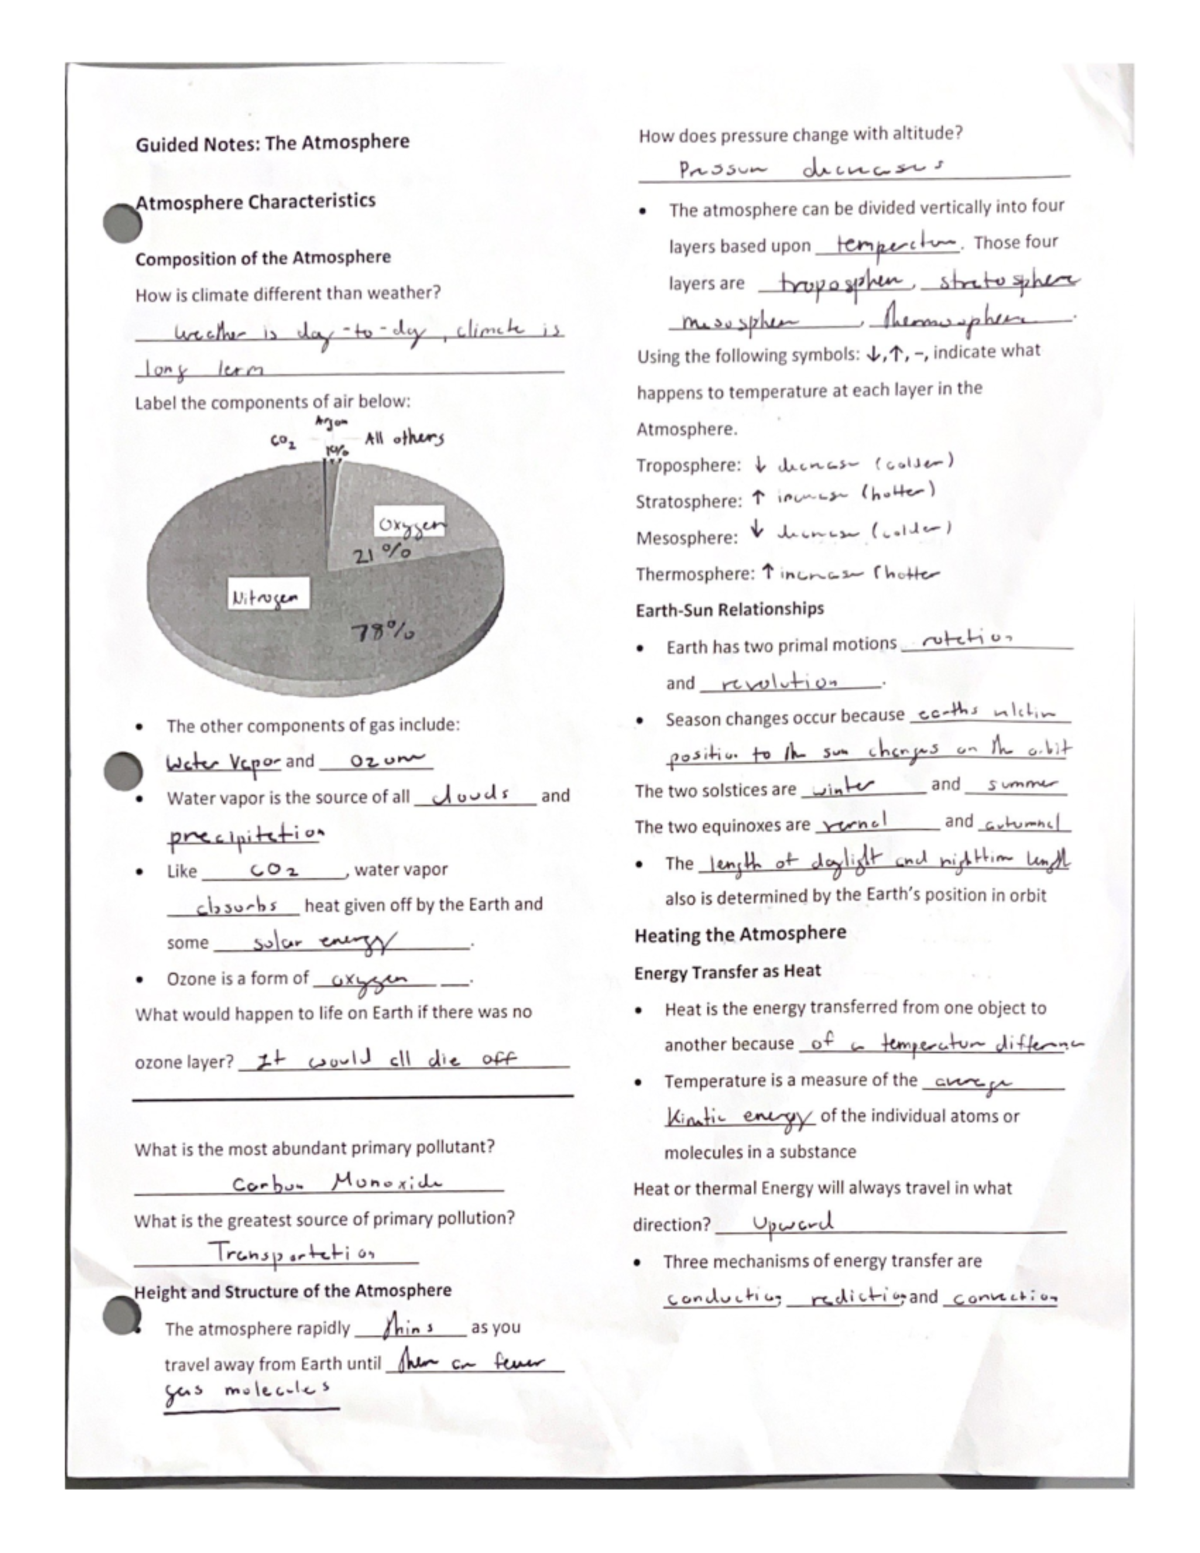 Guided Notes: The Atmosphere
Atmosphere Characteristics
Composition of the Atmosphere
How is climate different than weather?
weather is day-to-day, climate is
long term
Label the components of air below:
Argon
CO2 1% All others
Oxygen
21%
Nitrogen
78%
• The other components of gas include:
Water Vapor and Ozone
• Water vapor is the source of all clouds and
precipitation
• Like CO2, water vapor
absorbs heat given off by the Earth and
some solar energy.
• Ozone is a form of oxygen.
What would happen to life on Earth if there was no
ozone layer? It would all die off
What is the most abundant primary pollutant?
Carbon Monoxide
What is the greatest source of primary pollution?
Transportation
Height and Structure of the Atmosphere
• The atmosphere rapidly thins as you
travel away from Earth until there are fewer
gas molecules
How does pressure change with altitude?
Pressure decreases
• The atmosphere can be divided vertically into four
layers based upon temperature. Those four
layers are troposphere, stratosphere
mesosphere, thermosphere.
Using the following symbols: ↓,↑, –, indicate what
happens to temperature at each layer in the
Atmosphere.
Troposphere: ↓ decrease (colder)
Stratosphere: ↑ increase (hotter)
Mesosphere: ↓ decrease (colder)
Thermosphere: ↑ increase (hotter
Earth-Sun Relationships
• Earth has two primal motions rotation
and revolution.
• Season changes occur because earths relative
position to the sun changes on the orbit
The two solstices are winter and summer
The two equinoxes are vernal and autumnal
• The length of daylight and nighttime length
also is determined by the Earth's position in orbit
Heating the Atmosphere
Energy Transfer as Heat
• Heat is the energy transferred from one object to
another because of a temperature difference
• Temperature is a measure of the average
Kinetic energy of the individual atoms or
molecules in a substance
Heat or thermal Energy will always travel in what
direction? Upward
• Three mechanisms of energy transfer are
conduction, radiation, and convection